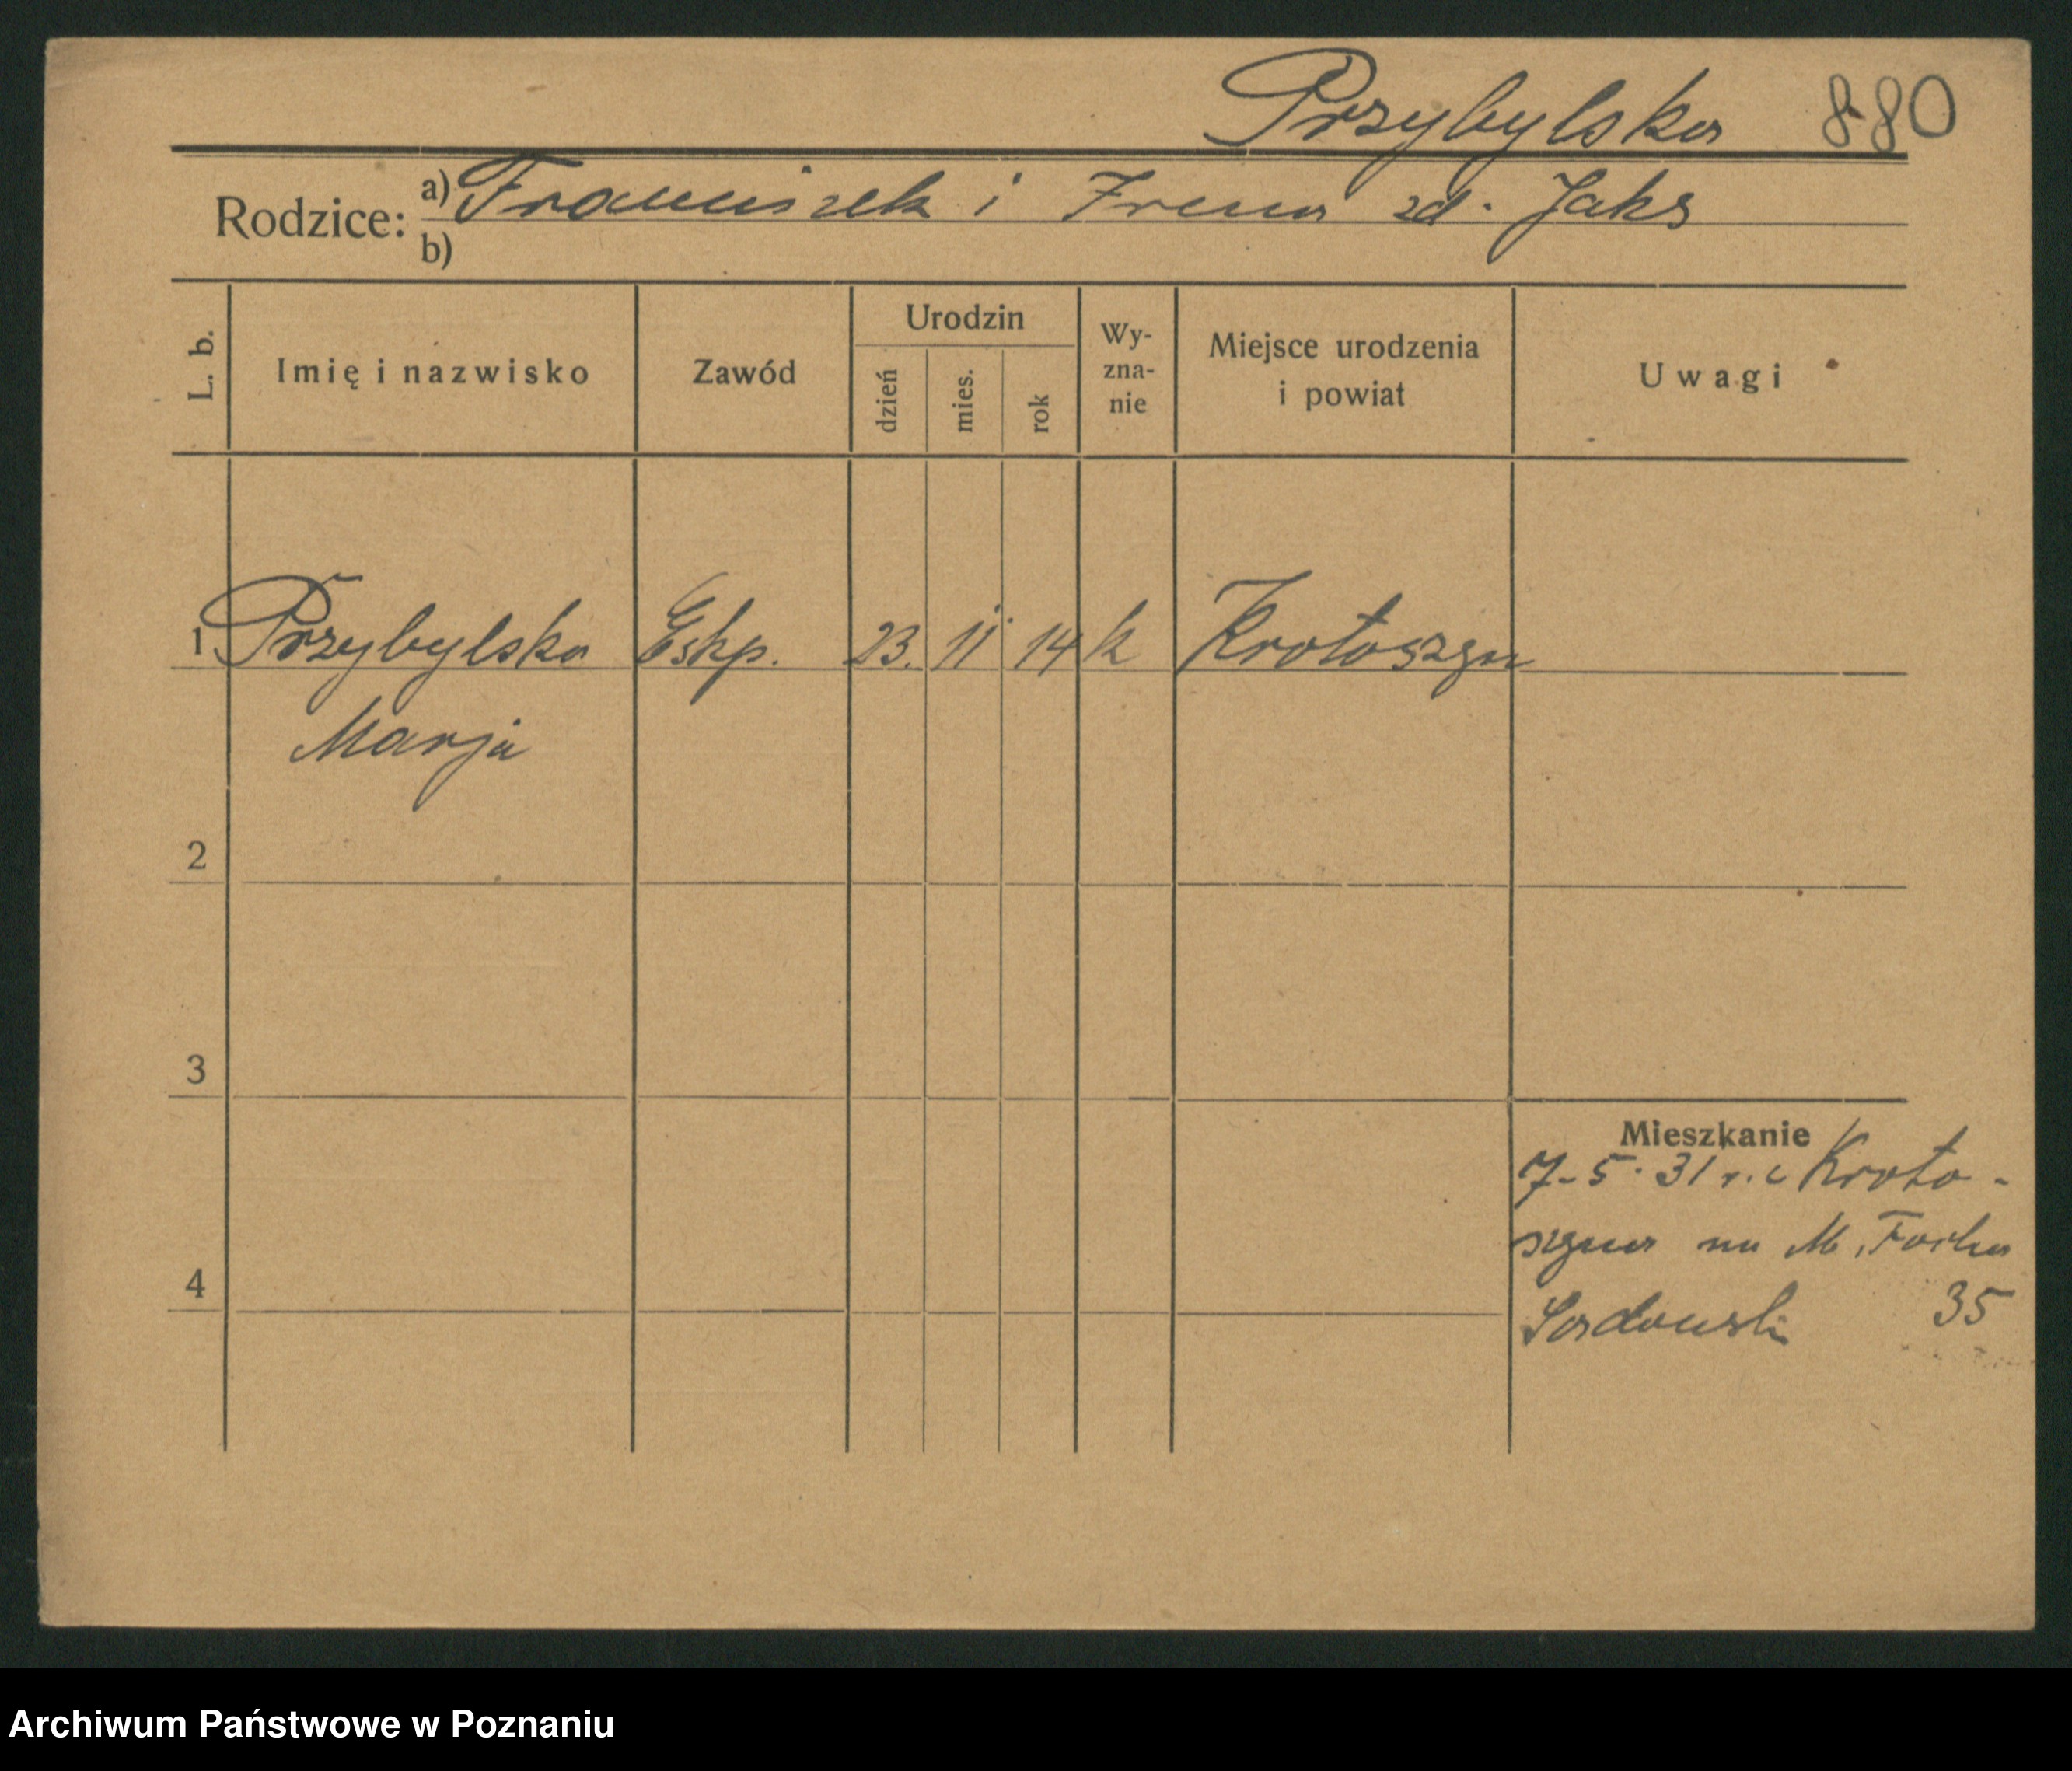 Przybylska 880
Rodzice: a) Franciszek i Irena zd. Jaks
b)
L. b. Imię i nazwisko Zawód Urodzin dzień mies. rok Wy-zna-nie Miejsce urodzenia i powiat Uwagi
1 Przybylska Eksp. 23. 11 14 k Krotoszyn
Marja
2
3
Mieszkanie
7-5-31 r. z Kroto-
szyna na M. Focha
4
Sadowski 35
Archiwum Państwowe w Poznaniu